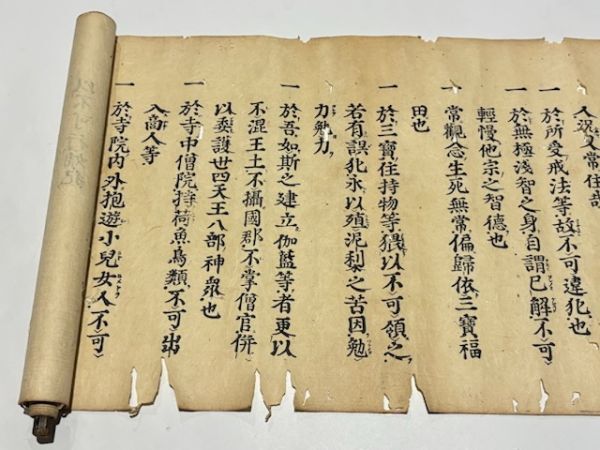 人況又常住哉
一 於所受戒法等故不可違犯也
一 於無極淺智之身自謂已解不可
輕慢他宗之智德也
一 常觀念生死無常偏歸依三寶福
田也
一 於三寶住持物等猥以不可領之
若有誤犯永以殖泥梨之苦因勉
力勉力
一 於吾如斯之建立伽藍等者更以
不混王土不攝國郡不掌僧官併
以委護世四天王八部神衆也
一 於寺中僧院持荷魚鳥類不可出
入商人等
一 於寺院内外抱遊小兒女人不可